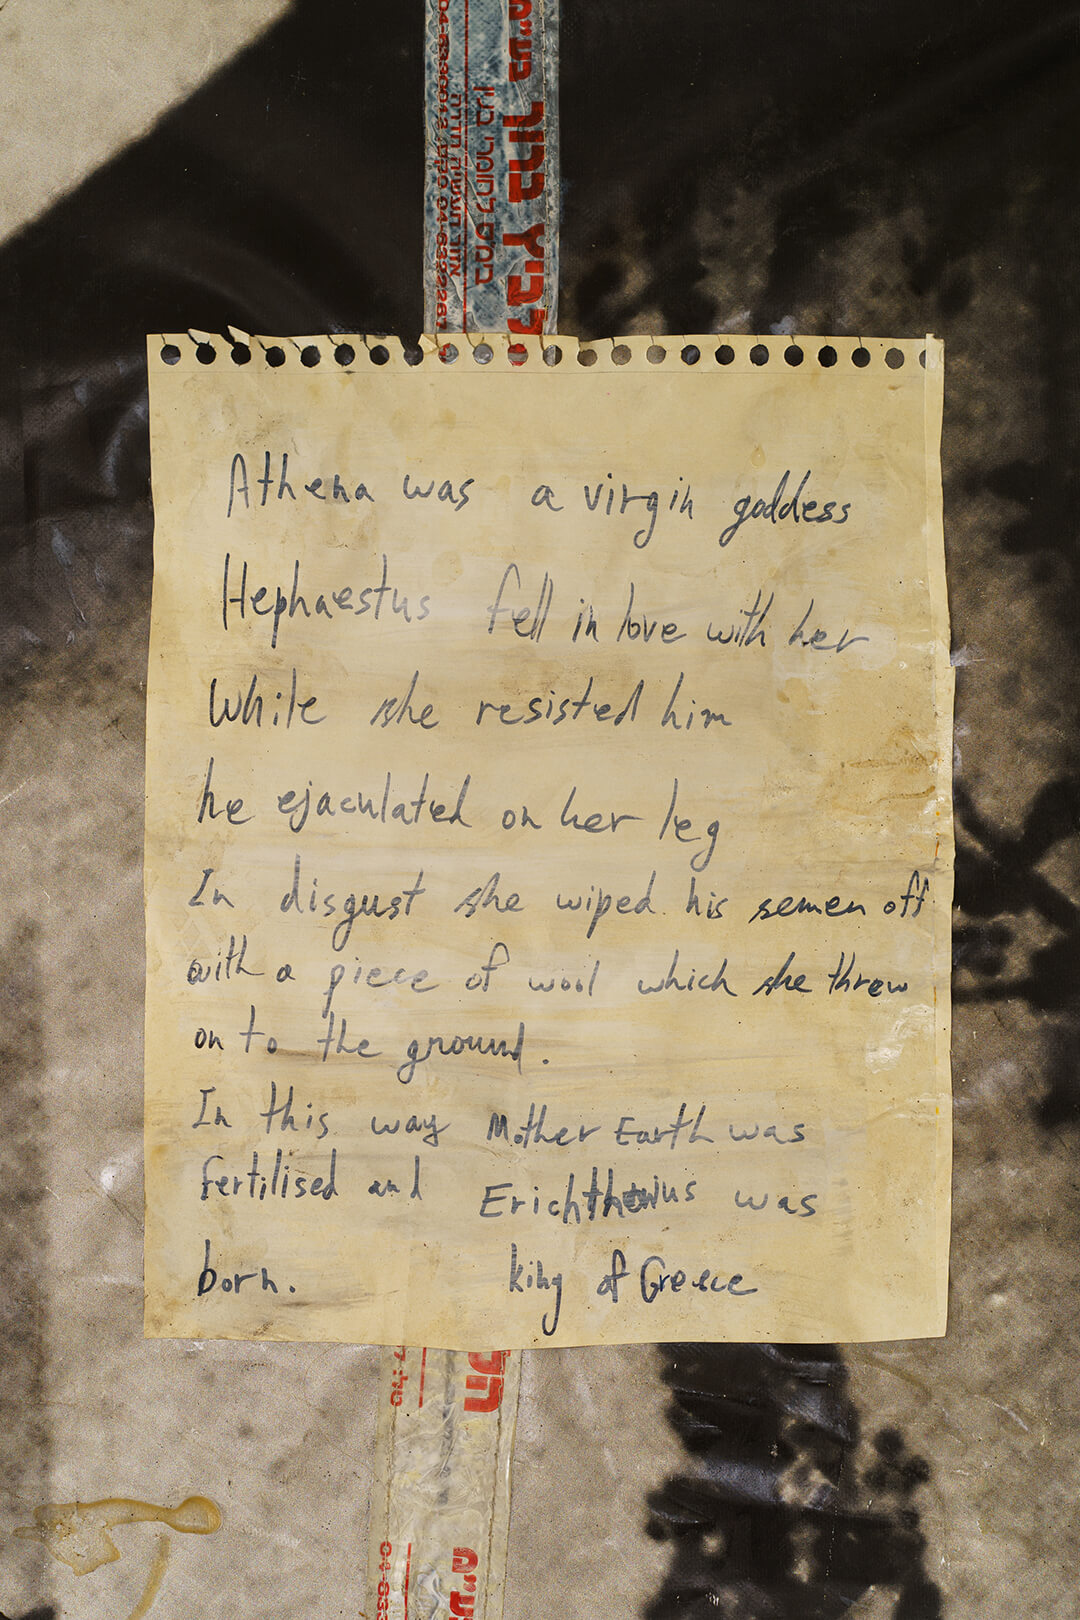 בע"מ
ברוך
לביץ
בע"מ לחומרי בנין
אזור תעשיה חדרה
Athena was a virgin goddess
Hephaestus fell in love with her
While she resisted him
he ejaculated on her leg
In disgust she wiped his semen off
with a piece of wool which she threw
on to the ground.
In this way Mother Earth was
fertilised and Erichthonius was
born. King of Greece
טל: 7
04-633
בע"מ